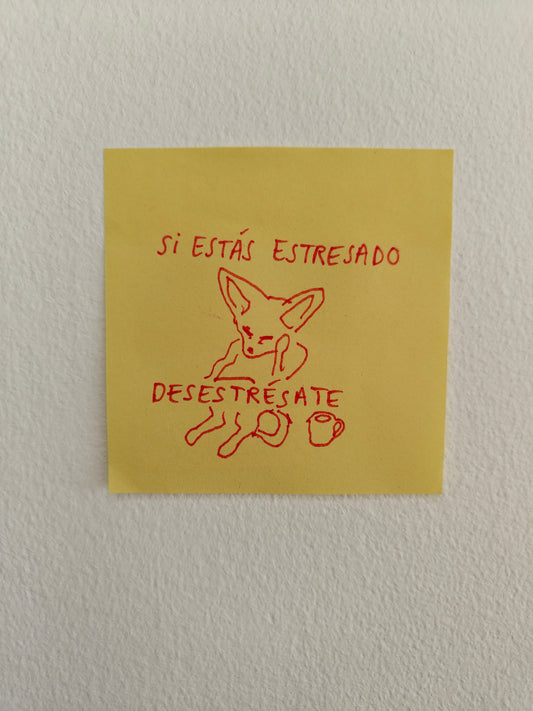 Si ESTÁS ESTRESADO
DESESTRÉSATE